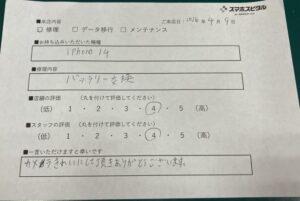 スマホスピタル
■来店内容 ご来店日：2026年4月9日
☑ 修理 □ データ移行 □ メンテナンス
■お持ち込みいただいた機種
iphone 14
■修理内容
バッテリー交換
■店舗の評価 （丸を付けて評価してください）
（低） 1 ・ 2 ・ 3 ・ 4 ・ 5 （高）
■スタッフの評価 （丸を付けて評価してください）
（低） 1 ・ 2 ・ 3 ・ 4 ・ 5 （高）
■一言いただけますと幸いです
カメラきれいにして頂きありがとうございます。